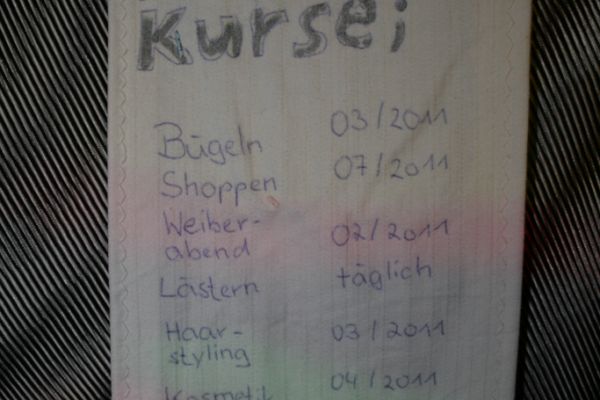 Kurse;
Bügeln 03/2011
Shoppen 07/2011
Weiber-
abend 02/2011
Lästern täglich
Haar-
styling 03/2011
Kosmetik 04/2011